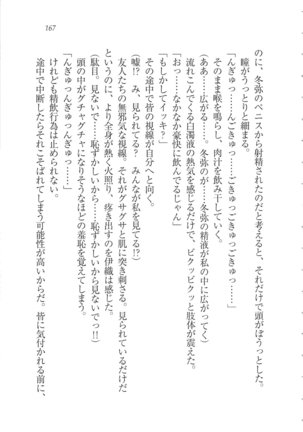 167
のに、冬弥のペニスから射精されたのだと考えると、それだけで頭がぼうっとした。
瞳がうっとりと細まる。
「んぎゅっ……んごきゅっ……ごきゅっごきゅっごきゅっ……」
そのまま喉を鳴らし、肉汁を飲み干していく。
(ああ……広がる……。冬弥のが……冬弥の精液が私の中に広がってく)
流れこんでくる白濁液の熱気を感じるだけで、ビクッビクッと肢体が震えた。
「おっ……なかなか豪快に飲んでるじゃん」
「もしかしてイッキ?」
その途中で皆の視線が自分へと向く。
(嘘!? み、見られてる? みんなが私を見てる!?)
友人たちの無邪気な視線。それがグサグサと肌に突き刺さる。見られているだけだ
というのに、より全身が熱く火照り、疼き出すのを伊織は感じた。
(駄目。見ないで……恥ずかしいから……恥ずかしいから見ないでっ!!)
頭の中がグチャグチャになりそうなほどの羞恥を覚えてしまう。
「んぎゅっんぎゅっんぎゅっ……」
けれども精飲行為は止められない。
途中で中断したらそれこそばれてしまう可能性が高いからだ。皆に気付かれる前に、